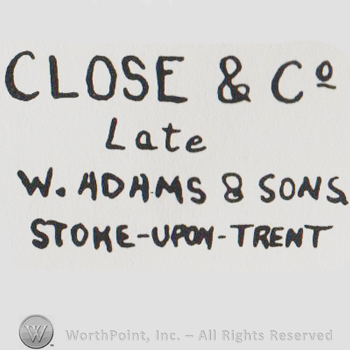 CLOSE & Cº
Late
W. ADAMS & SONS
STOKE-UPON-TRENT
W WorthPoint, Inc. – All Rights Reserved